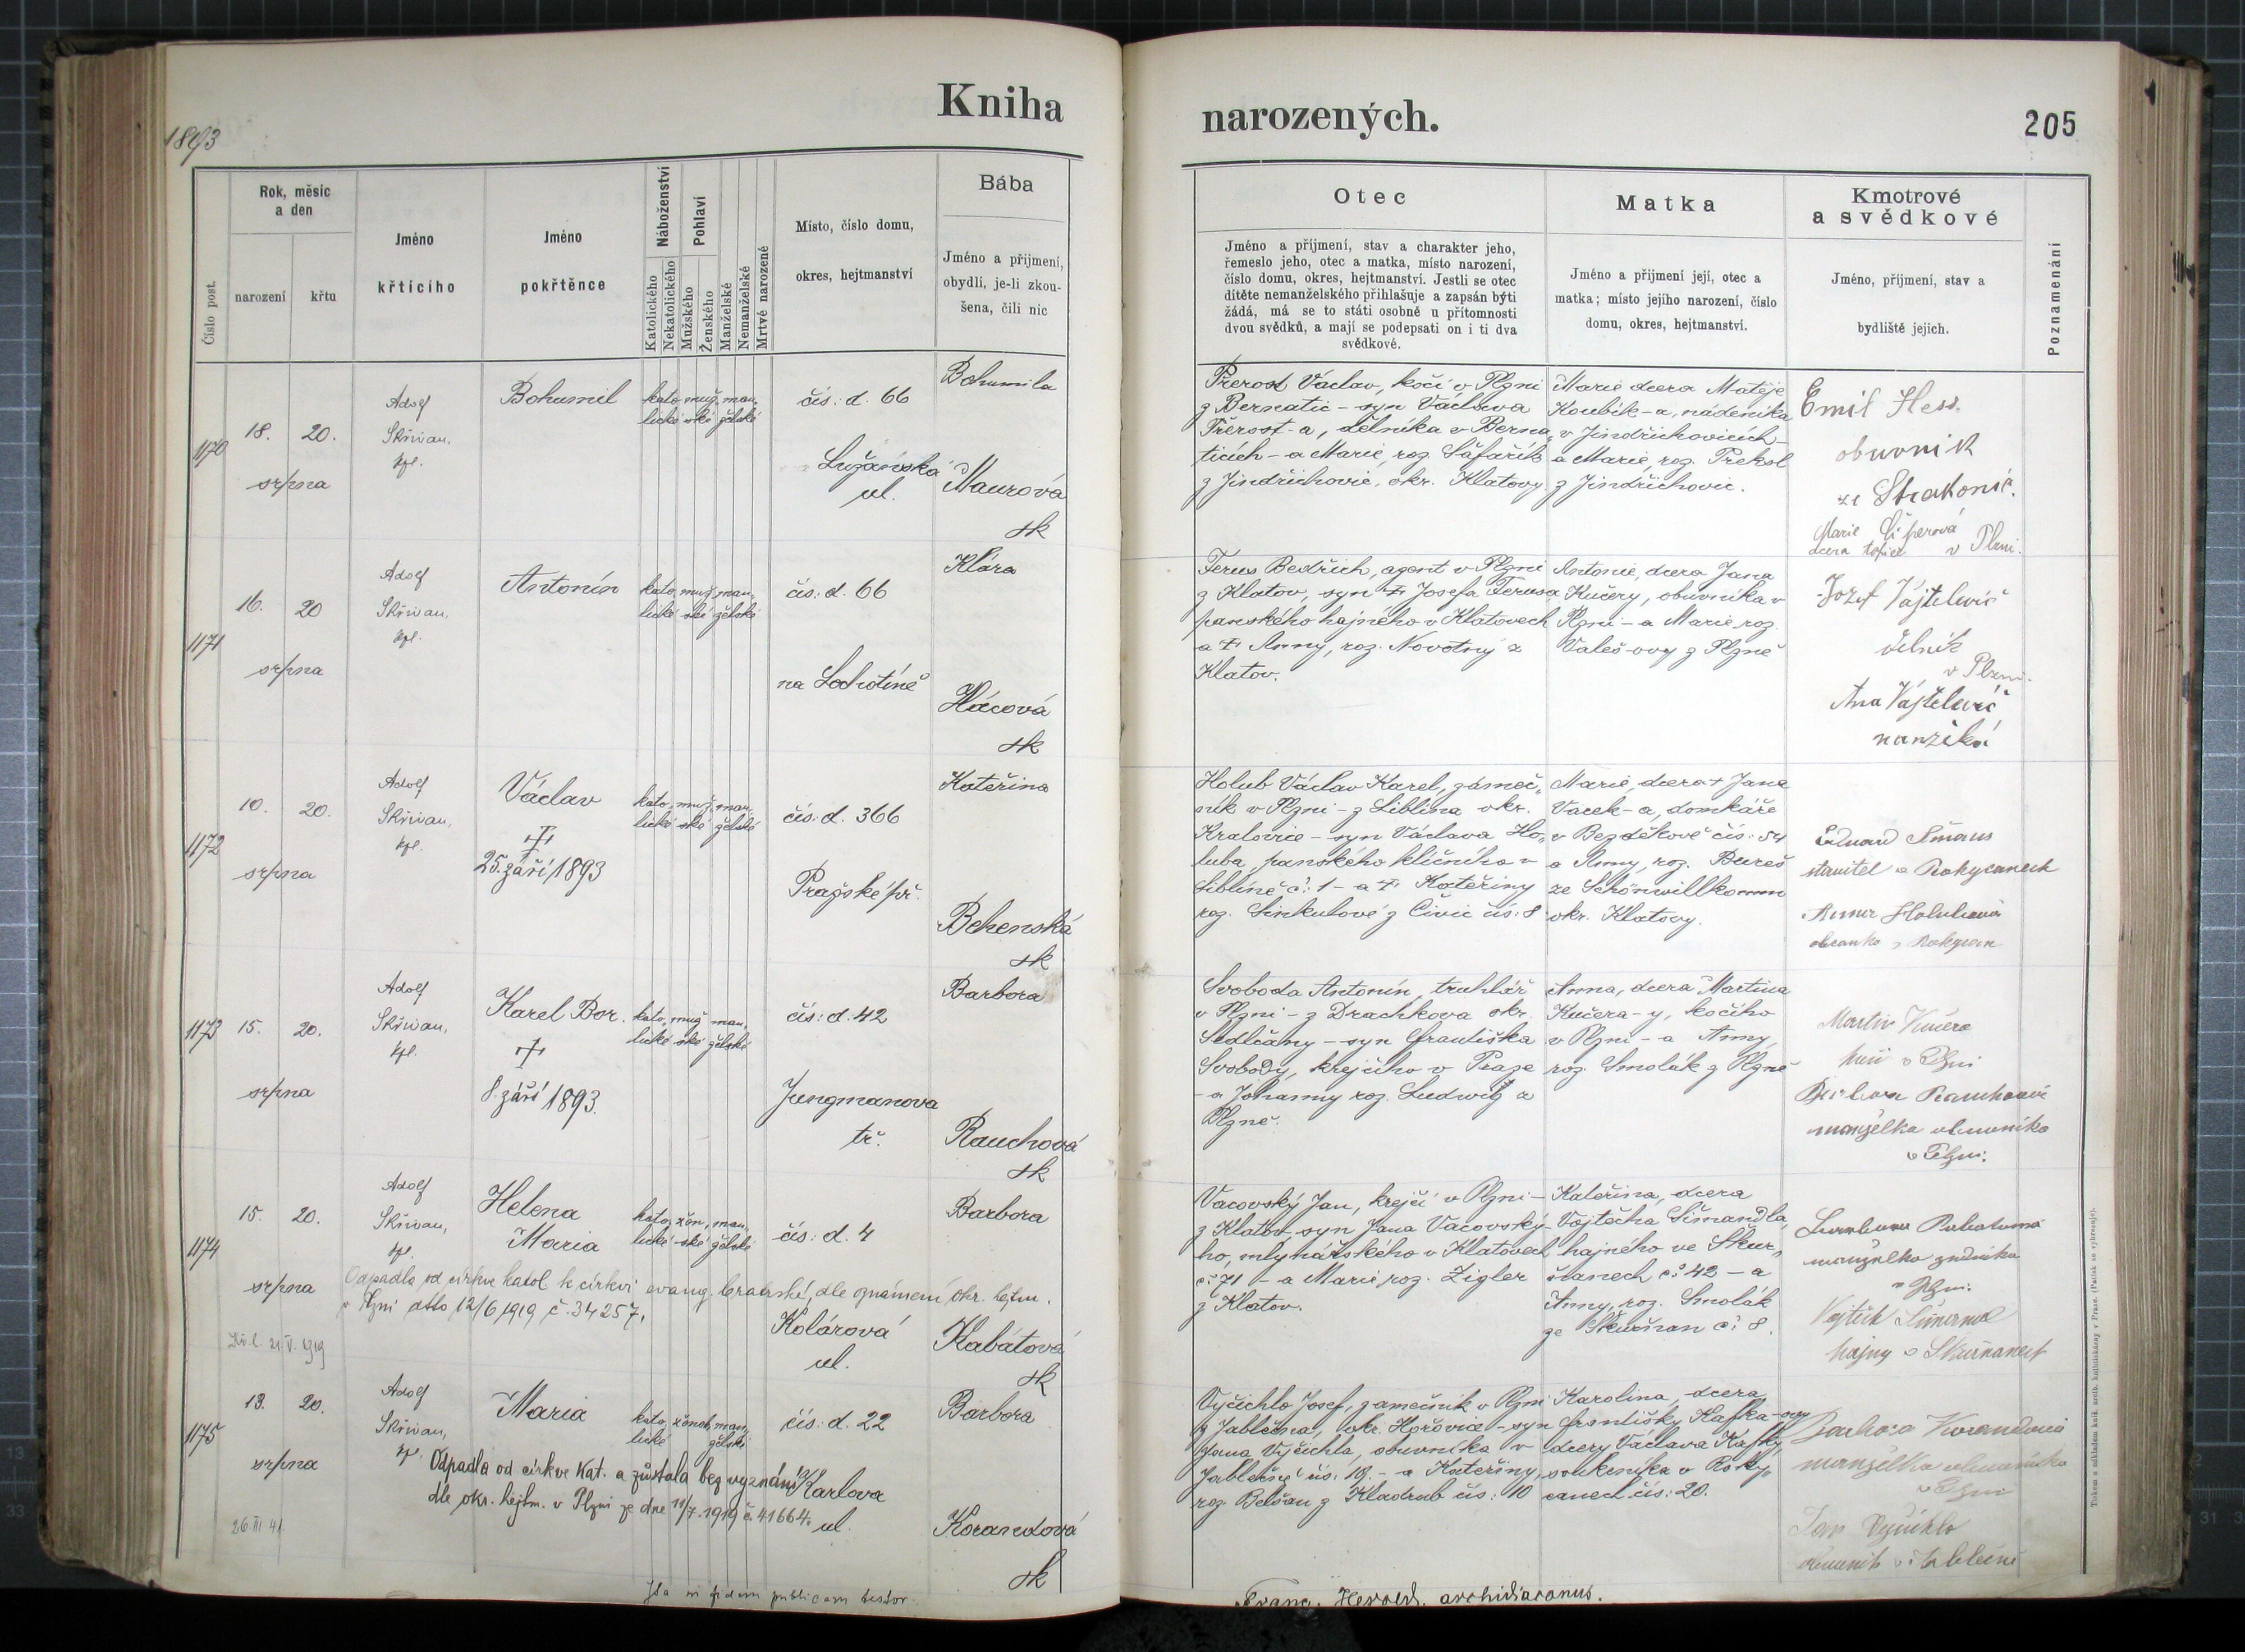 Kniha
1893
Číslo post.
Rok, měsíc
a den
narození
křtu
Jméno
křtícího
Jméno
pokřtěnce
Náboženství
Katolického
Nekatolického
Pohlaví
Mužského
Ženského
Manželské
Nemanželské
Mrtvé narozené
Místo, číslo domu,
okres, hejtmanství
Bába
Jméno a příjmení,
obydlí, je-li zkou-
šena, čili nic
1170
18. 20.
srpna
Adolf
Skřivan,
kpl.
Bohumil
kato„ muž„ man„
lické ské želské
čís: d. 66
Lužánská
ul.
Bohumila
Maurová
zk
1171
16. 20
srpna
Adolf
Skřivan,
kpl.
Antonín
kato„ muž„ man„
lické ské želské
čís: d. 66
na Lochotíně
Klára
Hácová
zk
1172
10. 20.
srpna
Adolf
Skřivan,
kpl.
Václav
†
25. září 1893
kato„ muž„ man„
lické ské želské
čís: d. 366
Pražské př.
Kateřina
Behenská
zk
1173
15. 20.
srpna
Adolf
Skřivan,
kpl.
Karel Bor.
†
8. září 1893.
kato„ muž man„
lické ské želské
čís: d. 42
Jungmanova
tř.
Barbora
Rauchová
zk
1174
15. 20.
srpna
Adolf
Skřivan,
kpl.
Helena
Maria
kato„ žen„ man„
lické ské želské
čís: d. 4
Odpadla od církve katol. k církvi evang. bratrské, dle oznámení okr. hejtm.
v Plzni ddto 12/6 1919 č. 34257.
Kolárová
ul.
Barbora
Kabátová
zk
21. V. 1919
1175
13. 20.
srpna
Adolf
Skřivan,
kpl.
Maria
kato„ žensk„ man„
lické želské
čís: d. 22
Odpadla od církve kat. a zůstala bez vyznání
dle okr. hejtm. v Plzni ze dne 11/7. 1919 č. 41664.
Karlova
ul.
Barbora
Korandová
zk
26 III 41
Ita in fidem publicam testor
narozených.
205
Otec
Jméno a příjmení, stav a charakter jeho,
řemeslo jeho, otec a matka, místo narození,
číslo domu, okres, hejtmanství. Jestli se otec
dítěte nemanželského přihlašuje a zapsán býti
žádá, má se to státi osobně u přítomnosti
dvou svědků, a mají se podepsati on i ti dva
svědkové.
Matka
Jméno a příjmení její, otec a
matka; místo jejího narození, číslo
domu, okres, hejtmanství.
Kmotrové
a svědkové
Jméno, příjmení, stav a
bydliště jejich.
Poznamenání
Přerost Václav, kočí v Plzni
z Bernatic – syn Václava
Přerost-a, dělníka v Berna„
ticích – a Marie, roz. Šafařík
z Jindřichovic, okr. Klatovy.
Marie dcera Matěje
Koubík-a, nádeníka
v Jindřichovicích –
a Marie, roz. Preksl
z Jindřichovic.
Emil Hess.
obuvník
ze Strakonic.
Marie
dcera v Plzni.
Ferus Bedřich, agent v Plzni
z Klatov, syn † Josefa Ferusa
panského hajného v Klatovech
a † Anny, roz. Novotný z
Klatov.
Antonie, dcera Jana
Kučery, obuvníka v
Plzni – a Marie roz.
Valeš-ovy z Plzně
Jozef Vajtelevič
dělník
v Plzni.
Ana Vajtelevič
manželka
Holub Václav Karel, zámeč„
ník v Plzni – z Liblína okr.
Kralovice – syn Václava Ho„
luba, panského klíčníka v
Liblíně č: 1 – a † Kateřiny
roz. Sinkulové z Čivic čís: 8
Marie, dcera † Jana
Vacek-a, domkáře
v Bezděkově čís: 54
a Anny, roz. Bureš
ze Schönwillkomm
okr. Klatovy.
Eduard Šmaus
stavitel v Rokycanech
Anna Holubová
občanka z Rokycan
Svoboda Antonín, truhlář
v Plzni – z Drachkova okr.
Sedlčany – syn Františka
Svobody, krejčího v Praze
– a Johanny roz. Ludwig z
Plzně.
Anna, dcera Martina
Kučera-y, kočího
v Plzni – a Anny
roz. Smolák z Plzně
Martin Kučera
kočí v Plzni
Barbora Rauchová
manželka obuvníka
v Plzni.
Vacovský Jan, krejčí v Plzni –
z Klatov, syn Jana Vacovský-
ho, mlynářského v Klatovech
č: 71 – a Marie roz. Zigler
z Klatov.
Kateřina, dcera
Vojtěcha Šimandla,
hajného ve Skur„
ňanech č: 42 – a
Anny, roz. Smolák
ze Skurňan č: 8.
manželka zedníka
v Plzni.
Vojtěch Šimandl
hajný v Skurňanech
Vyčichlo Josef, zámečník v Plzni
z Jablečna, okr. Hořovice – syn
Jana Vyčichla, obuvníka v
Jablečně čís: 19. – a Kateřiny,
roz. Belšan z Kladrub čís: 10
Karolina, dcera
Františky Kafka-ovy
dcery Václava Kafky,
soukeníka v Roky„
canech čís: 20.
Barbora Korandová
manželka obuvníka
v Plzni
Jan Vyčichlo
obuvník v Jablečně
Franc. Herold, archidiaconus.